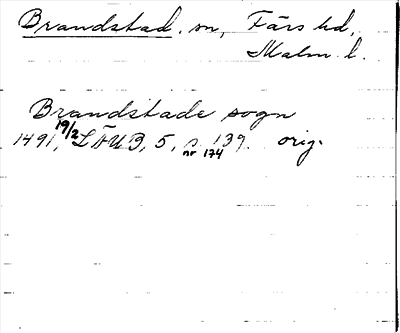 Brandstad, sn, Färs hd,
Malm. l.
Brandstade sogn
1491, 19/2 LÄUB, 5, s. 139. orig.
nr 174